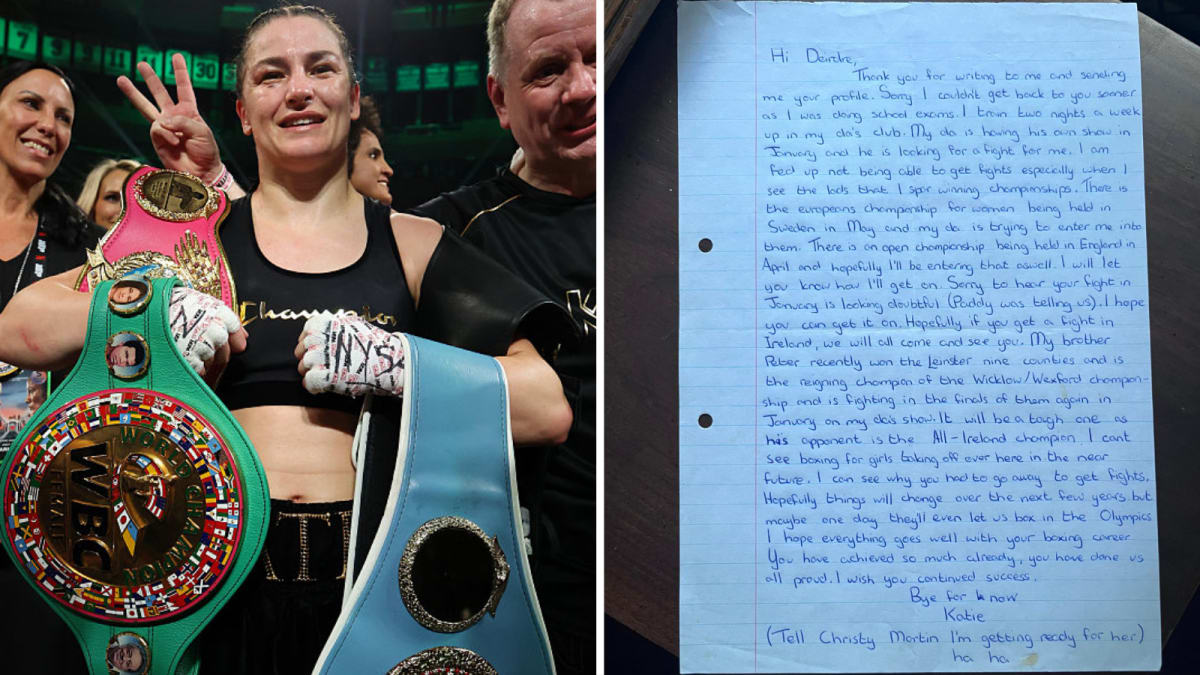 7
30
Champion
NYS
WORLD
WBC
CHAMPION
Hi Deirdre,
Thank you for writing to me and sending
me your profile. Sorry I couldn't get back to you sooner
as I was doing school exams. I train two nights a week
up in my da's club. My da is having his own show in
January and he is looking for a fight for me. I am
fed up not being able to get fights especially when I
see the lads that I spar winning championships. There is
the europeans championship for women being held in
Sweden in May and my da is trying to enter me into
them. There is an open championship being held in England in
April and hopefully I'll be entering that aswell. I will let
you know how I'll get on. Sorry to hear your fight in
January is looking doubtful (Paddy was telling us). I hope
you can get it on. Hopefully if you get a fight in
Ireland, we will all come and see you. My brother
Peter recently won the Leinster nine counties and is
the reigning champion of the Wicklow/Wexford champion-
ship and is fighting in the finals of them again in
January on my da's show. It will be a tough one as
his opponent is the All-Ireland champion. I cant
see boxing for girls taking off over here in the near
future. I can see why you had to go away to get fights.
Hopefully things will change over the next few years but
maybe one day they'll even let us box in the Olympics
I hope everything goes well with your boxing career
You have achieved so much already, you have done us
all proud. I wish you continued success.
Bye for know
Katie
(Tell Christy Martin I'm getting ready for her)
ha ha